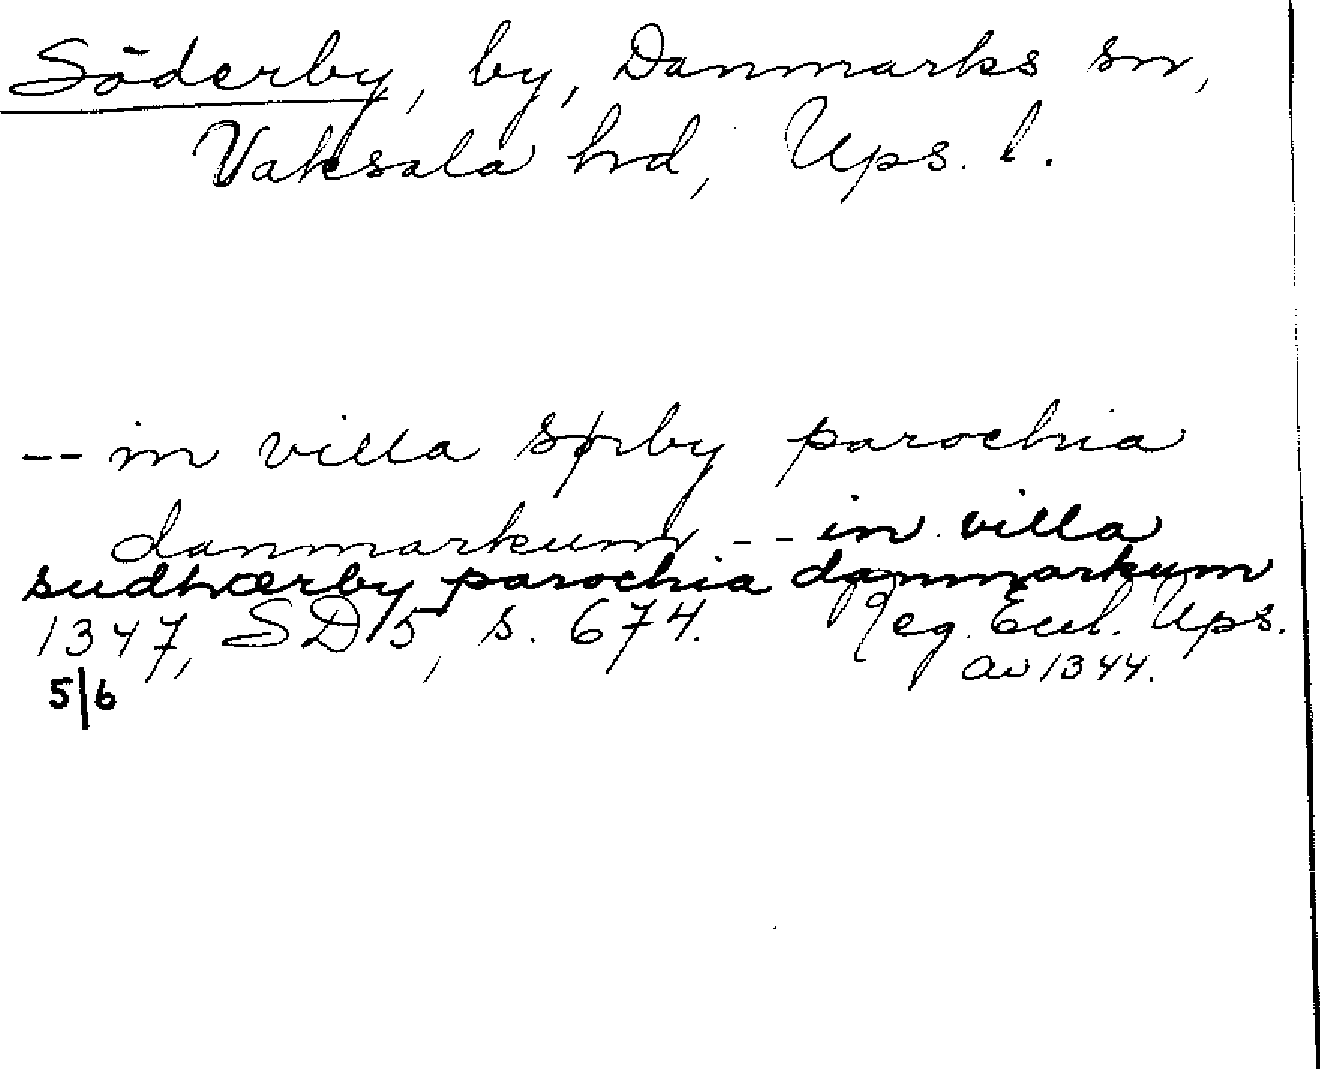 Söderby, by, Danmarks sn,
Vaksala hd, Ups. l.
-- in villa sørby parochia
danmarkum -- in villa
sudhærby parochia danmarkum
1347, SD 5, s. 674. Reg. Eccl. Ups.
av 1344.
5/6